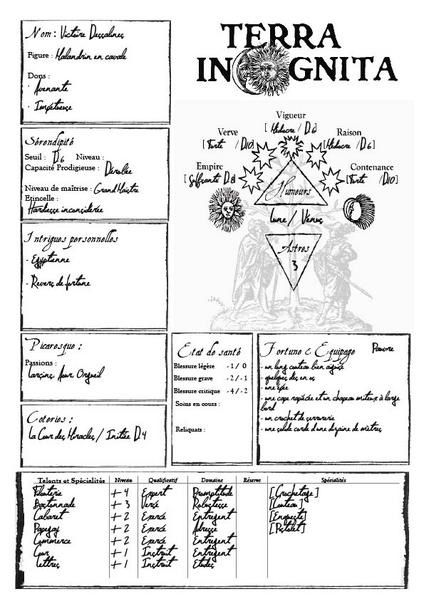 TERRA
INCOGNITA
Nom : Victoire Dessalines
Figure : Malandrin en cavale
Dons :
- Avenante
- Impétueuse
Sérendipité
Seuil : D6 Niveau :
Capacité Prodigieuse : Dérobée
Niveau de maîtrise : Grand Maître
Etincelle :
Hardiesse inconsidérée
Intrigues personnelles
- Egyptienne
- Revers de fortune
Picaresque :
Passions :
Larcins Amour Orgueil
Coteries :
La Cour des Miracles / Initié D4
Vigueur
[Médiocre / D6]
Verve
[Forte / D10]
Raison
[Médiocre / D6]
Empire
[Suffisante D8]
Contenance
[Forte / D10]
Humeurs
Lune / Vénus
Astres
3
Etat de santé
Blessure légère - 1 / 0
Blessure grave - 2 / -1
Blessure critique - 4 / -2
Soins en cours :
Reliquats :
Fortune & Equipage Pauvre
- un long couteau bien aiguisé
- quelques dés en os
- une épée
- une cape rapiécée et un chapeau miteux à large
bord
- un crochet de serrurerie
- une solide corde d'une dizaine de mètres
Talents et Spécialités Niveau Qualificatif Domaine Réserve Spécialités
Filouterie + 4 Expert Promptitude [Crochetage]
Bastonnade + 3 Versé Robustesse [Couteau]
Cabaret + 2 Exercé Entregent [Enquête]
+ 2 Exercé Adresse
Commerce + 2 Exercé Entregent
Cour + 1 Instruit Entregent
Lettres + 1 Instruit Etudes